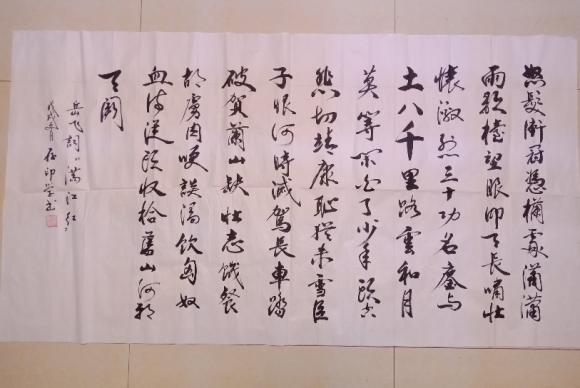 怒髮衝冠憑欄處瀟瀟
雨歇擡望眼仰天長嘯壯
懷激烈三十功名塵與
土八千里路雲和月
莫等閒白了少年頭空
悲切靖康恥猶未雪臣
子恨何時滅駕長車踏
破賀蘭山缺壯志饑餐
胡虜肉笑談渴飲匈奴
血待從頭收拾舊山河朝
天闕
岳飛詞滿江紅
戊戌 印學書